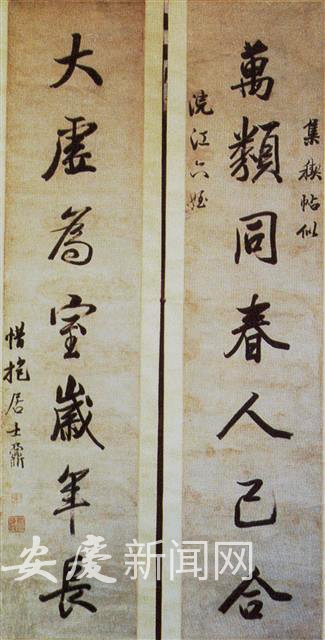 集禊帖似
萬類同春人己合
浣江六姪
大虛為室歲年長
惜抱居士鼐
安慶新闻网